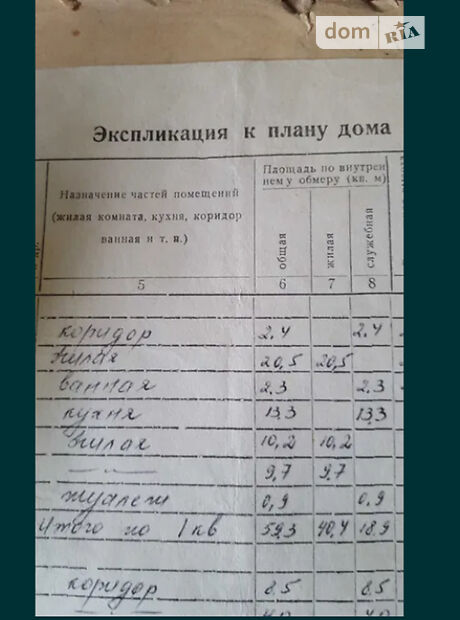 dom RIA
Экспликация к плану дома
Назначение частей помещений
(жилая комната, кухня, коридор
ванная и т. п.)
Площадь по внутрен
нему обмеру (кв. м)
общая
жилая
служебная
5 6 7 8
коридор 2.4 2.4
Жилая 20,5 20,5
ванная 2.3 2.3
кухня 13.3 13.3
Жилая 10,2 10,2
—〃— 9.7 9.7
туалет 0,9 0,9
Итого по 1 кв 59,3 40,4 18.9
коридор 8.5 8.5